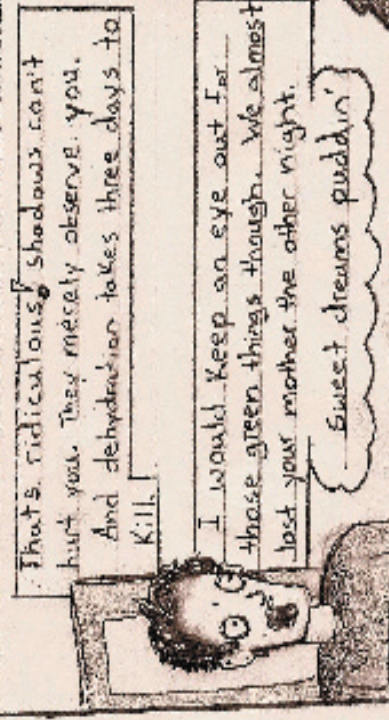 Thats ridiculous, shadows can't
hurt you. They merely observe you.
And dehydration takes three days to
Kill.
I would keep an eye out for
those green things though. We almost
lost your mother the other night.
Sweet dreams puddin'